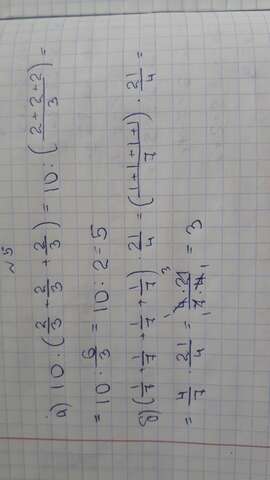 ~5
а) 10 : (2/3 + 2/3 + 2/3) = 10 : ((2+2+2)/3) =
= 10 : 6/3 = 10 : 2 = 5
б) (1/7 + 1/7 + 1/7 + 1/7) · 21/4 = ((1+1+1+1)/7) · 21/4 =
= 4/7 · 21/4 = (¹4 · 21³)/(₁7 · 4₁) = 3